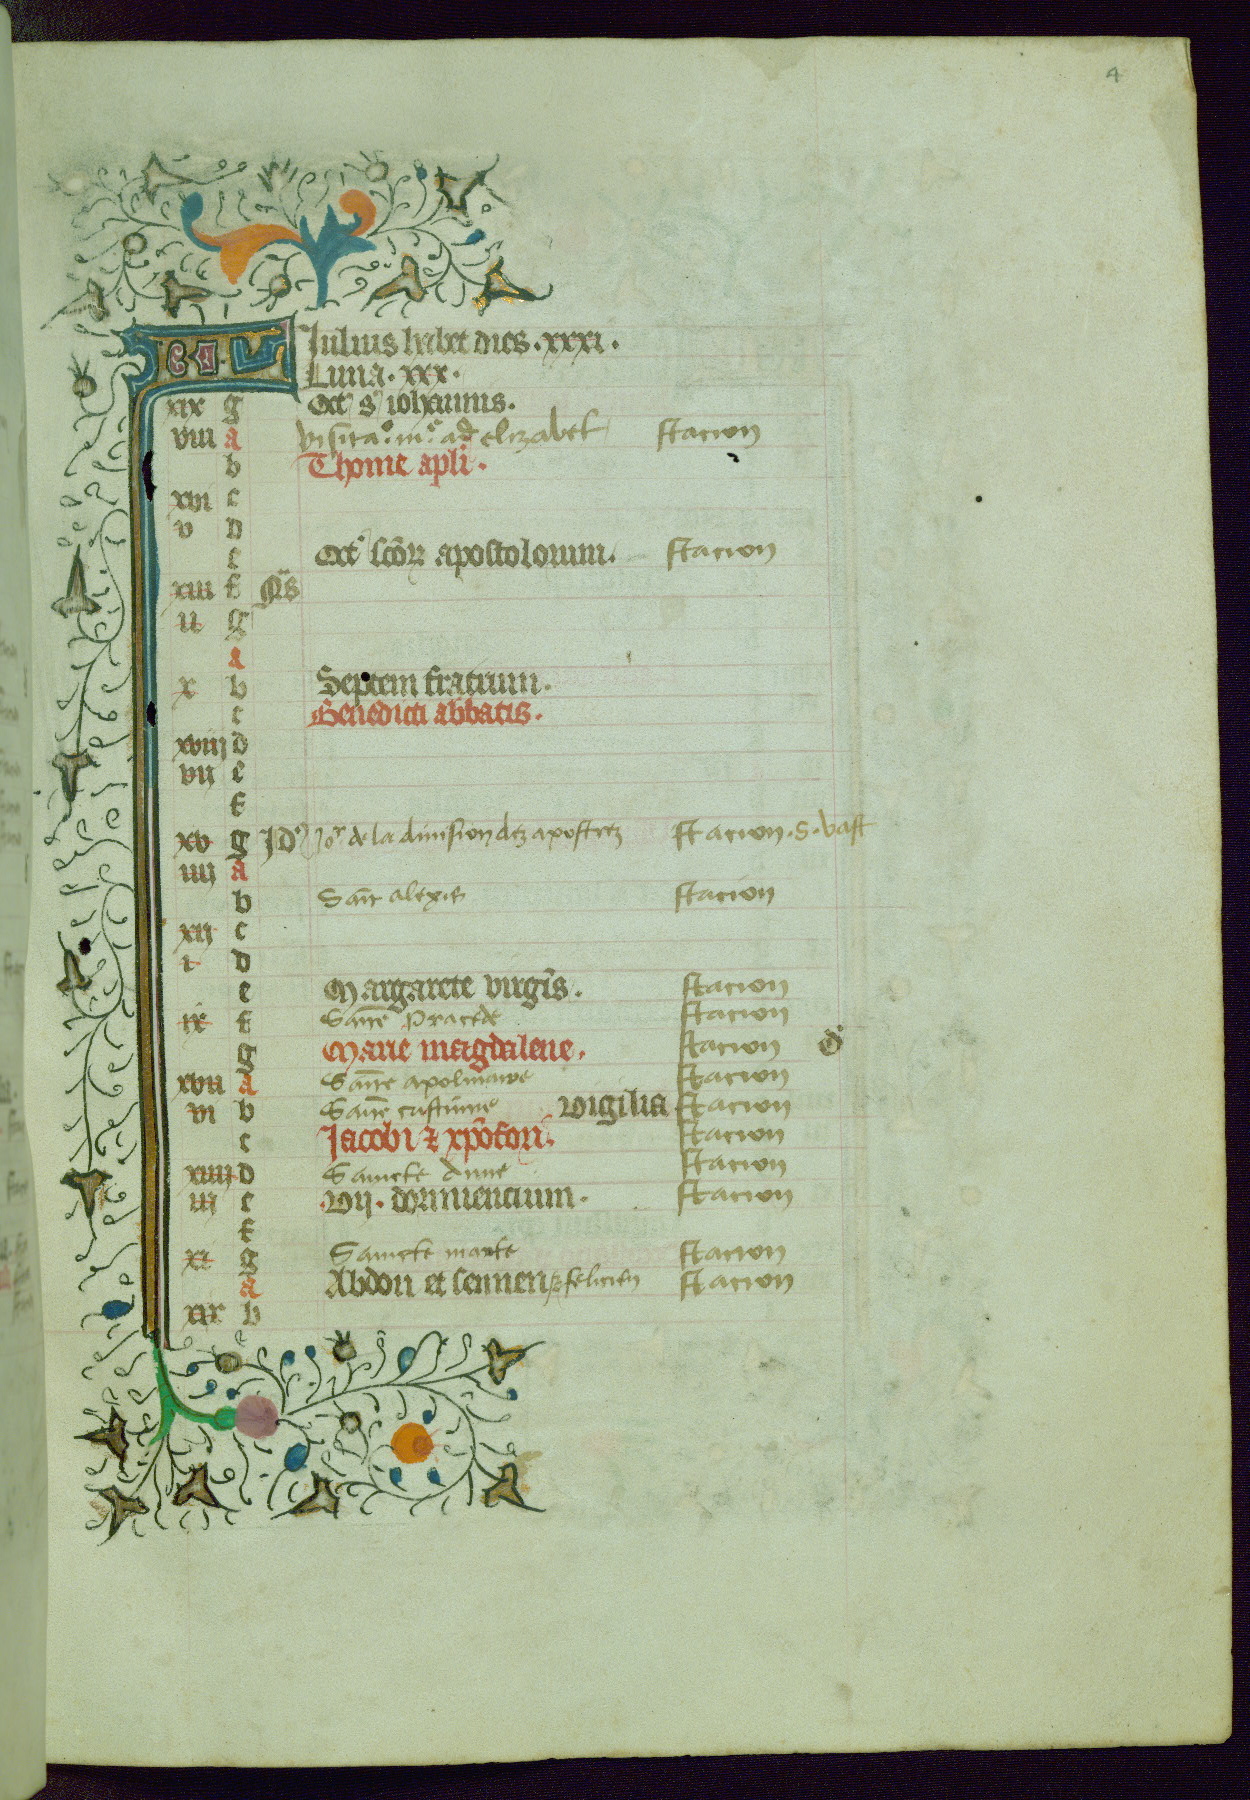 4
KL Iulius habet dies .xxxi.
Luna .xxx.
xix g Oct s iohannis.
viii a visita° m° ad elizabet stacion
b Thome apli.
xvi c
v d
e Oct scorum apostolorum. stacion
xiii f N̄s
ii g
a
x b Septem fratrum.
c Benedicti abbatis.
xviij d
vij e
f
xv g Id° Jor de la division dez apostrez stacion . S . vast
iiij a
b Saint alexis stacion
xij c
i d
e Margarete virgis. stacion
ix f Sancte Praxede stacion
g Marie magdalene. stacion
xvii a stacion
vi b Vigilia stacion
c Jacobi z xpofori. stacion
xiiij d Saincte Anne stacion
iij e Vij. dormiencium. stacion
f
xi g Saincte marte stacion
a Abdon et sennen z felicien stacion
xix b